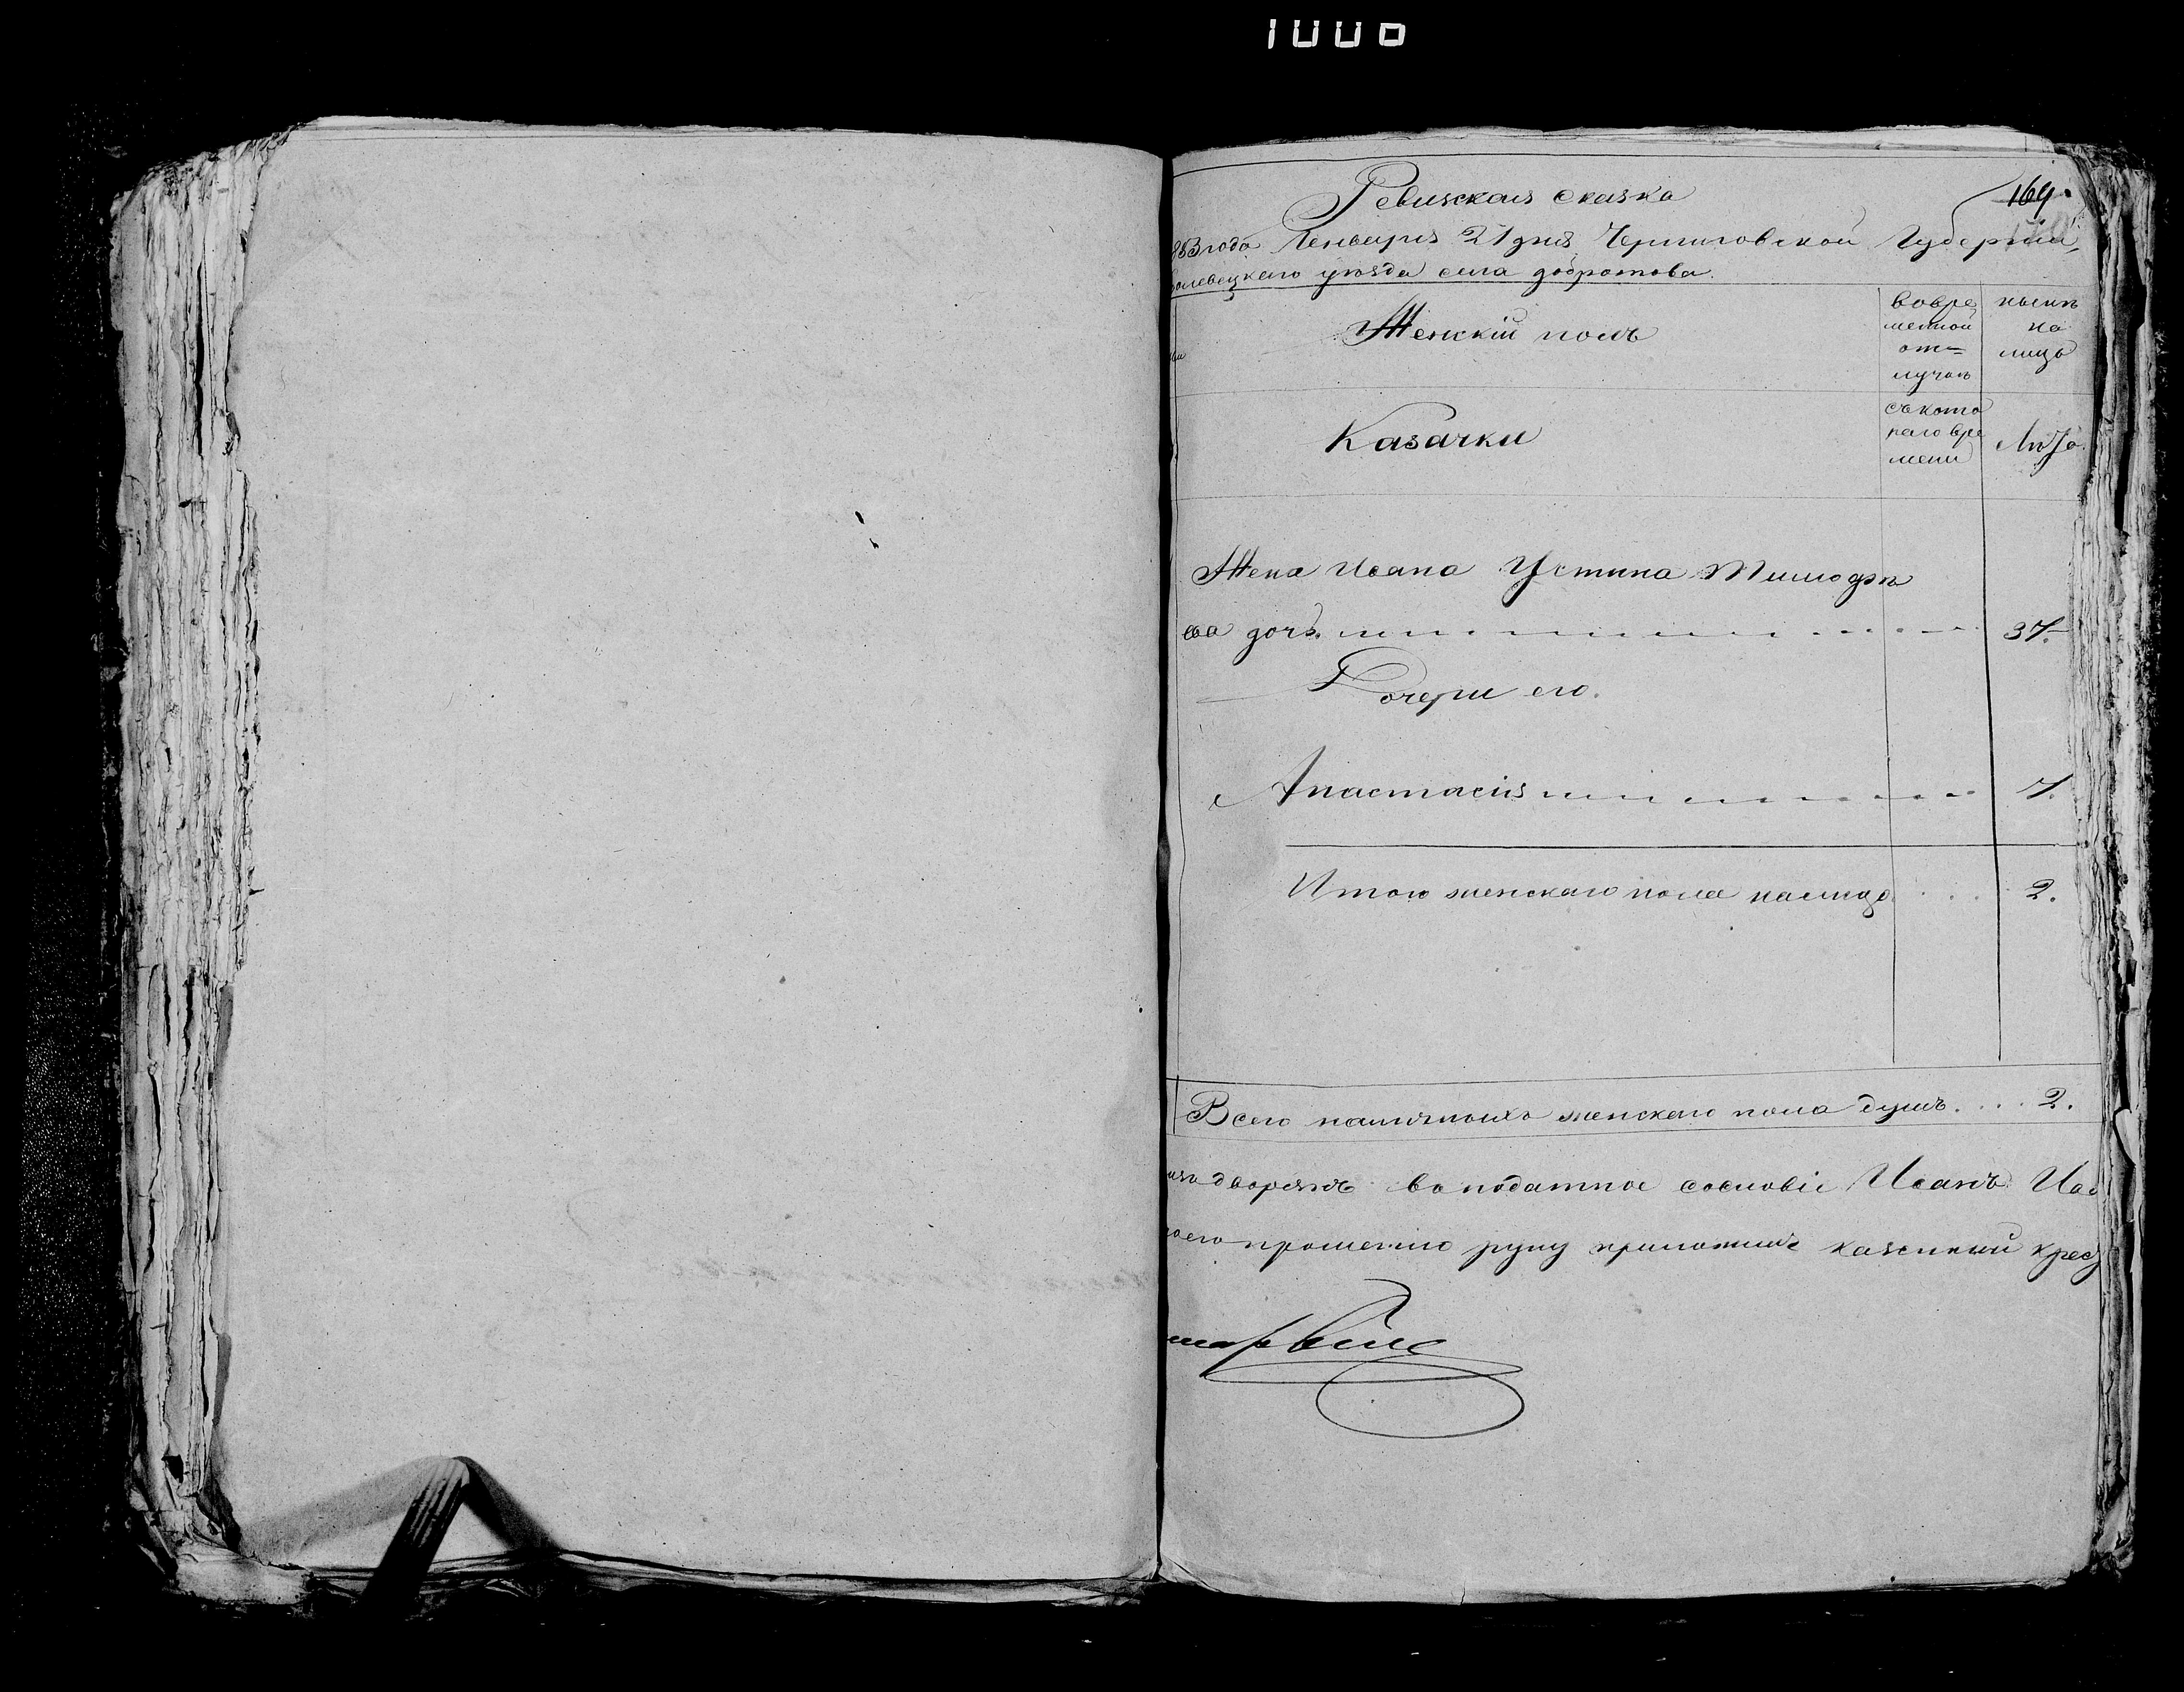 1000
Ревизская сказка
169.
883 года Генваря 21 дня Черниговской Губернии,
олевецкаго уѣзда села добротова.
Женскій полъ
вовре
менной
от=
лучкѣ
нынѣ
на
лицо
Казачки
съ кото
раго вре
мени
Лѣта
Жена Ивана Устина Тимофѣ
ева дочь 37.
Дочери его.
Анастасія 7.
Итого женскаго пола налицо 2.
Всего наличныхъ женскаго пола душъ.... 2.
изъ дворянъ въ податное сословіе Иванъ Ива
прошенію руку приложилъ казенный крес